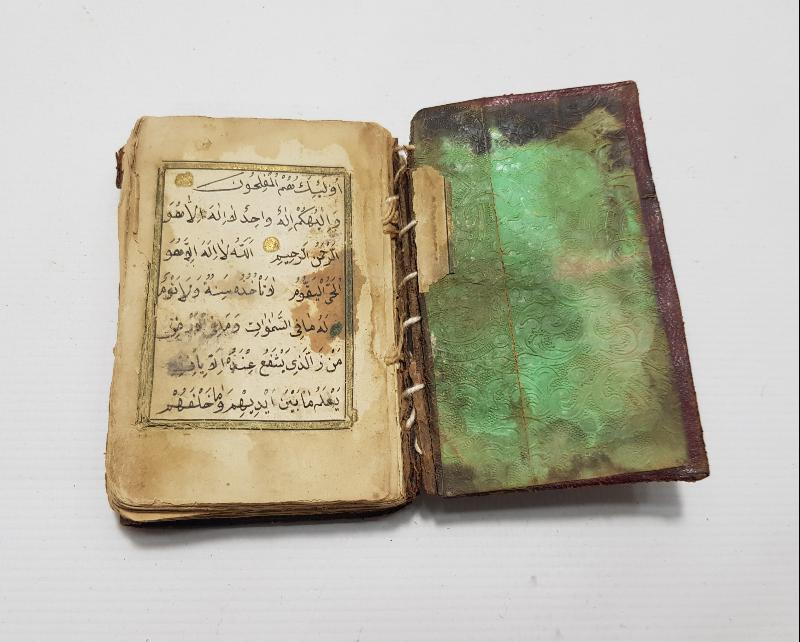 أُولٰئِكَ هُمُ الْمُفْلِحُونَ
وَإِلٰهُكُمْ إِلٰهٌ وَاحِدٌ لَا إِلٰهَ إِلَّا هُوَ
الرَّحْمٰنُ الرَّحِيمُ اَللّٰهُ لَا إِلٰهَ إِلَّا هُوَ
الْحَيُّ الْقَيُّومُ لَا تَأْخُذُهُ سِنَةٌ وَلَا نَوْمٌ
لَهُ مَا فِي السَّمٰوَاتِ وَمَا
مَنْ ذَا الَّذِي يَشْفَعُ عِنْدَهُ إِلَّا
يَعْلَمُ مَا بَيْنَ أَيْدِيهِمْ وَمَا خَلْفَهُمْ